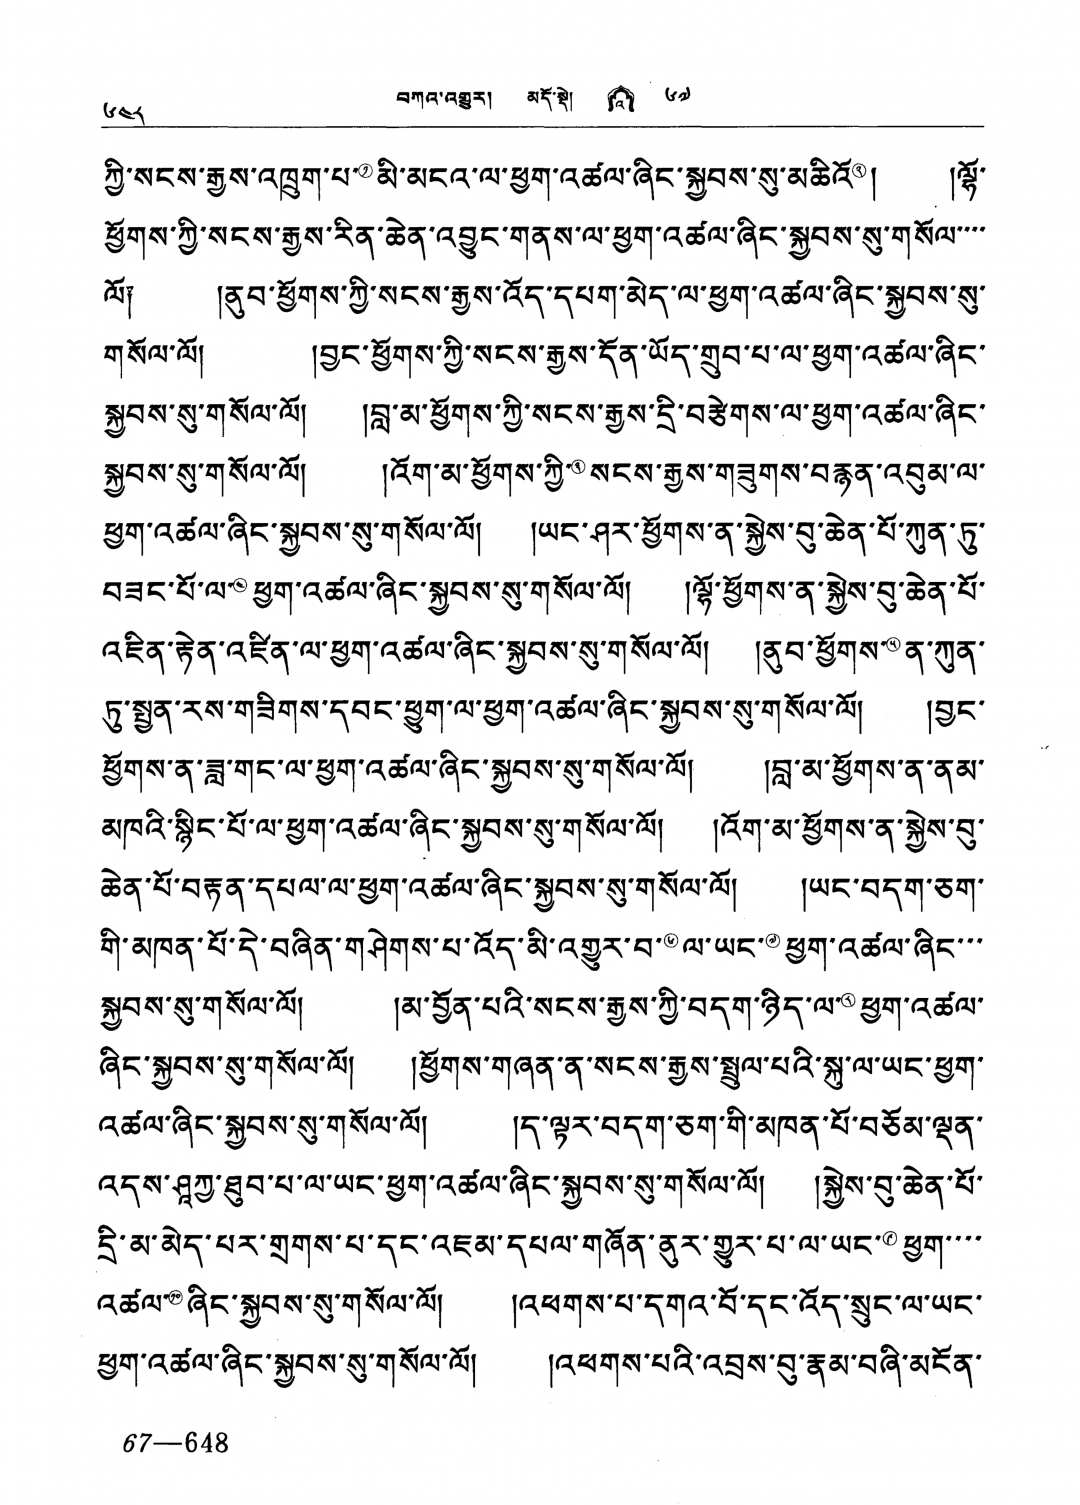 ༦༤༨ བཀའ་འགྱུར། མདོ་སྡེ། འ ༦༧
ཀྱི་སངས་རྒྱས་འཁྲུག་པ་①མི་མངའ་ལ་ཕྱག་འཚལ་ཞིང་སྐྱབས་སུ་མཆིའོ②། །ལྷོ་
ཕྱོགས་ཀྱི་སངས་རྒྱས་རིན་ཆེན་འབྱུང་གནས་ལ་ཕྱག་འཚལ་ཞིང་སྐྱབས་སུ་གསོལ་་་་
ལོ། །ནུབ་ཕྱོགས་ཀྱི་སངས་རྒྱས་འོད་དཔག་མེད་ལ་ཕྱག་འཚལ་ཞིང་སྐྱབས་སུ་
གསོལ་ལོ། །བྱང་ཕྱོགས་ཀྱི་སངས་རྒྱས་དོན་ཡོད་གྲུབ་པ་ལ་ཕྱག་འཚལ་ཞིང་
སྐྱབས་སུ་གསོལ་ལོ། །བླ་མ་ཕྱོགས་ཀྱི་སངས་རྒྱས་དྲི་བརྩེགས་ལ་ཕྱག་འཚལ་ཞིང་
སྐྱབས་སུ་གསོལ་ལོ། །འོག་མ་ཕྱོགས་ཀྱི་③སངས་རྒྱས་གཟུགས་བརྙན་འབུམ་ལ་
ཕྱག་འཚལ་ཞིང་སྐྱབས་སུ་གསོལ་ལོ། །ཡང་ཤར་ཕྱོགས་ན་སྐྱེས་བུ་ཆེན་པོ་ཀུན་ཏུ་
བཟང་པོ་ལ་④ཕྱག་འཚལ་ཞིང་སྐྱབས་སུ་གསོལ་ལོ། །ལྷོ་ཕྱོགས་ན་སྐྱེས་བུ་ཆེན་པོ་
འཇིན་རྟེན་འཛིན་ལ་ཕྱག་འཚལ་ཞིང་སྐྱབས་སུ་གསོལ་ལོ། །ནུབ་ཕྱོགས་⑤ན་ཀུན་
ཏུ་སྤྱན་རས་གཟིགས་དབང་ཕྱུག་ལ་ཕྱག་འཚལ་ཞིང་སྐྱབས་སུ་གསོལ་ལོ། །བྱང་
ཕྱོགས་ན་ཟླ་གང་ལ་ཕྱག་འཚལ་ཞིང་སྐྱབས་སུ་གསོལ་ལོ། །བླ་མ་ཕྱོགས་ན་ནམ་
མཁའི་སྙིང་པོ་ལ་ཕྱག་འཚལ་ཞིང་སྐྱབས་སུ་གསོལ་ལོ། །འོག་མ་ཕྱོགས་ན་སྐྱེས་བུ་
ཆེན་པོ་བརྟན་དཔལ་ལ་ཕྱག་འཚལ་ཞིང་སྐྱབས་སུ་གསོལ་ལོ། །ཡང་བདག་ཅག་
གི་མཁན་པོ་དེ་བཞིན་གཤེགས་པ་འོད་མི་འགྱུར་བ་⑥ལ་ཡང་⑦ཕྱག་འཚལ་ཞིང་་་
སྐྱབས་སུ་གསོལ་ལོ། །མ་བྱོན་པའི་སངས་རྒྱས་ཀྱི་བདག་ཉིད་ལ་⑧ཕྱག་འཚལ་
ཞིང་སྐྱབས་སུ་གསོལ་ལོ། །ཕྱོགས་གཞན་ན་སངས་རྒྱས་སྤྲུལ་པའི་སྐུ་ལ་ཡང་ཕྱག་
འཚལ་ཞིང་སྐྱབས་སུ་གསོལ་ལོ། །ད་ལྟར་བདག་ཅག་གི་མཁན་པོ་བཅོམ་ལྡན་
འདས་ཤཱཀྱ་ཐུབ་པ་ལ་ཡང་ཕྱག་འཚལ་ཞིང་སྐྱབས་སུ་གསོལ་ལོ། །སྐྱེས་བུ་ཆེན་པོ་
དྲི་མ་མེད་པར་གྲགས་པ་དང་འཇམ་དཔལ་གཞོན་ནུར་གྱུར་པ་ལ་ཡང་⑨ཕྱག་་་་
འཚལ་⑩ཞིང་སྐྱབས་སུ་གསོལ་ལོ། །འཕགས་པ་དགའ་བོ་དང་འོད་སྲུང་ལ་ཡང་
ཕྱག་འཚལ་ཞིང་སྐྱབས་སུ་གསོལ་ལོ། །འཕགས་པའི་འབྲས་བུ་རྣམ་བཞི་མངོན་
67—648